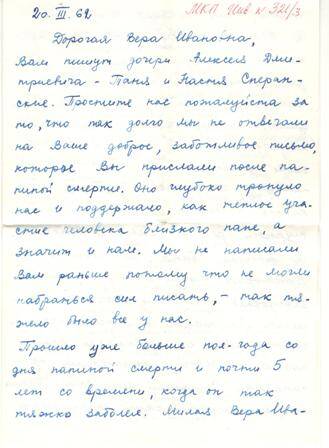 20.III.62
МКП Инв № 321/3
Дорогая Вера Ивановна,
Вам пишут дочери Алексея Дми-
триевича – Таня и Настя Сперан-
ские. Простите нас пожалуйста за
то, что так долго мы не отвечали
на Ваше доброе, заботливое письмо,
которое Вы прислали после па-
пиной смерти. Оно глубоко тронуло
нас и поддержало, как теплое уча-
стие человека близкого папе, а
значит и нам. Мы не написали
Вам раньше потому что не могли
набраться сил писать, – так тя-
жело было все у нас.
Прошло уже больше пол-года со
дня папиной смерти и почти 5
лет со времени, когда он так
тяжко заболел. Милая Вера Ива-